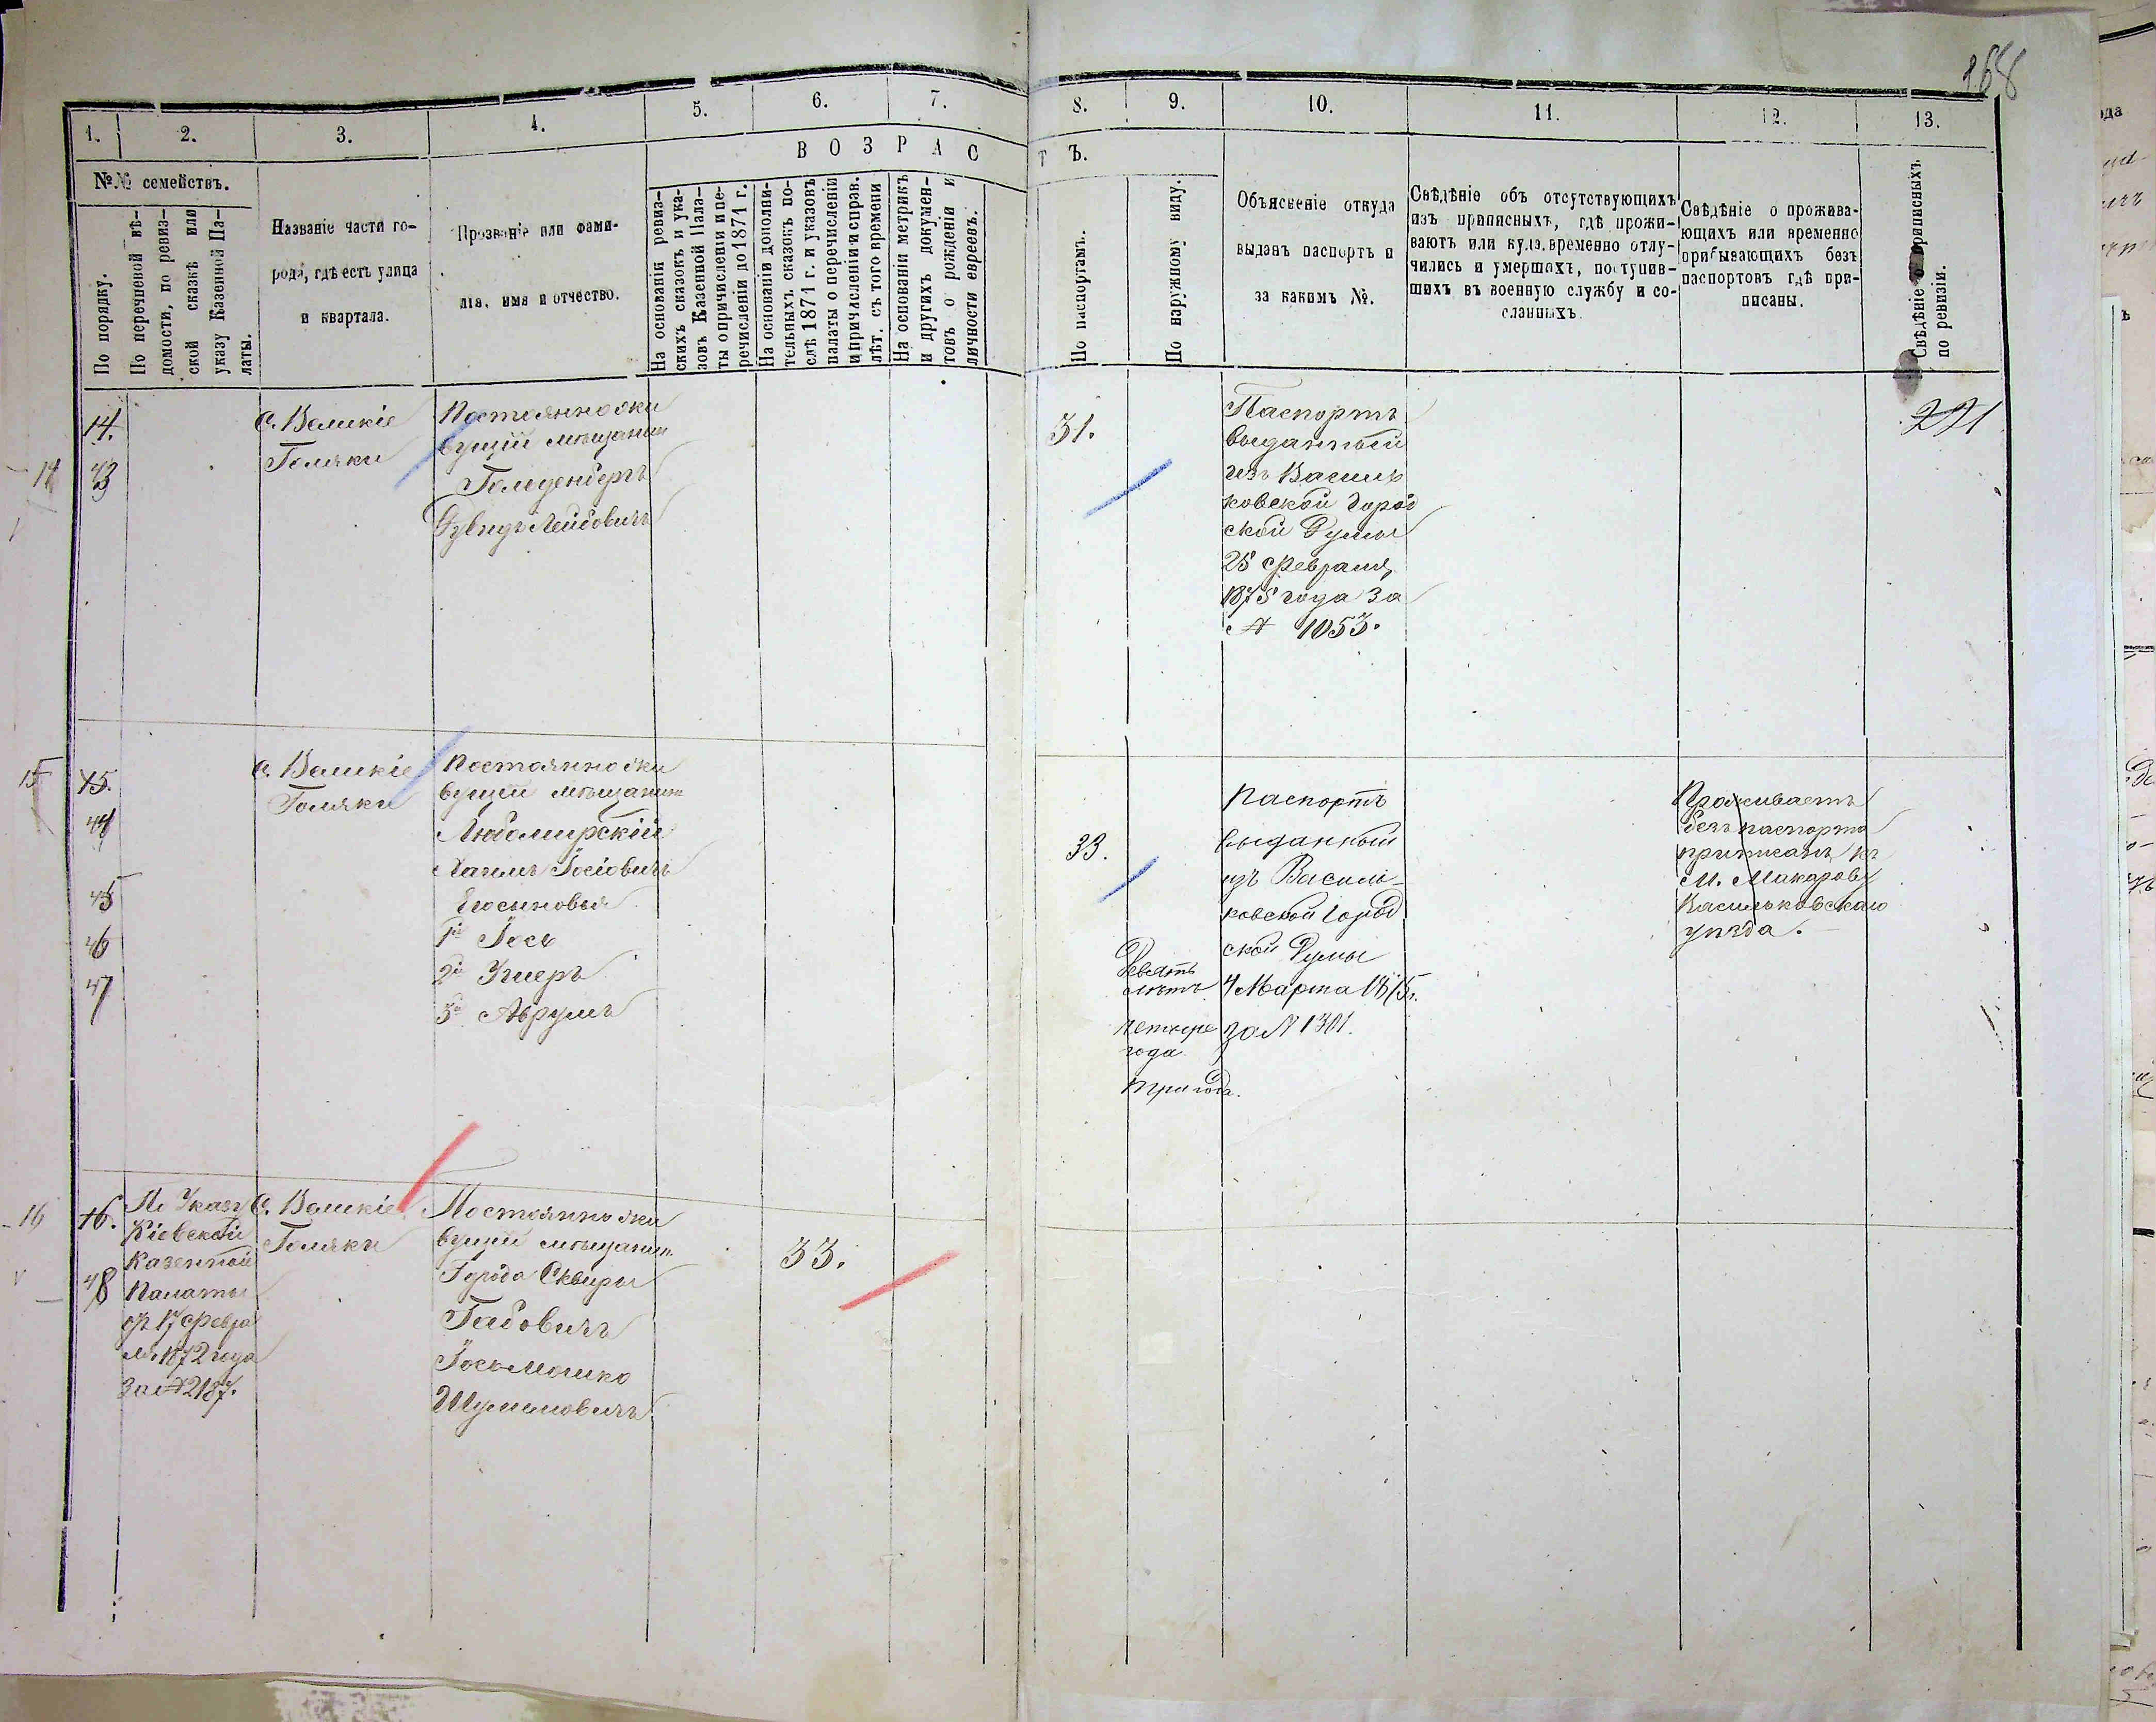 168
1.
2.
3.
4.
5.
6.
7.
8.
9.
10.
11.
12.
13.
В О З Р А С
Т Ъ.
№№ семействъ.
По порядку.
По перечневой вѣ-
домости, по ревиз-
ской сказкѣ или
указу Казенной Па-
латы.
Названіе части го-
рода, гдѣ есть улица
и квартала.
Прозваніе или фами-
лія, имя и отчество.
На основаніи ревиз-
скихъ сказокъ и ука-
зовъ Казенной Пала-
ты о причисленіи и пе-
речисленіи до 1871 г.
На основаніи дополни-
тельныхъ сказокъ по-
слѣ 1871 г. и указовъ
палаты о перечисленіи
и причисленіи и справ.
лѣт. съ того времени
На основаніи метрикъ
и другихъ докумен-
товъ о рожденіи и
личности евреевъ.
По паспортамъ.
По наружному виду.
Объясненіе откуда
выданъ паспортъ и
за какимъ №.
Свѣдѣніе объ отсутствующихъ
изъ приписныхъ, гдѣ прожи-
ваютъ или куда временно отлу-
чились и умершихъ, поступив-
шихъ въ военную службу и со-
сланныхъ.
Свѣдѣніе о прожива-
ющихъ или временно
прибывающихъ безъ
паспортовъ гдѣ при-
писаны.
Свѣдѣніе о приписныхъ
по ревизіи.
14
14.
43
с. Великіе
Голяки
Постоянно жи
вущій мѣщанинъ
Гольденбергъ
Дувидъ Лейбовичъ
31.
Паспортъ
выданный
изъ Василь
ковской Город
ской Думы
25 Февраля
1875 года за
№ 1053.
221
15
15.
44
45
46
47
с. Великіе
Голяки
Постоянно жи
вущій мѣщанинъ
Любомирскій
Хаимъ Іосіовичъ
Егосыновья
1й Іось
2й Ушеръ
3й Аврумъ
33.
Девять
лѣтъ
четыре
года
три года.
Паспортъ
выданный
изъ Василь-
ковской Город
ской Думы
4 Марта 1875 г.
за № 1301.
Проживаетъ
безъ паспорта
приписанъ къ
М. Макарову
Васильковскаго
уѣзда.
16
16.
48
По Указу
Кіевской
Казенной
Палаты
отъ 17 Февра
ля 1872 года
за № 2187.
с. Великіе
Голяки
Постоянно жи
вущій мѣщанинъ
Города Сквиры
Габовичъ
Іось Мошко
Шулимовичъ
33.